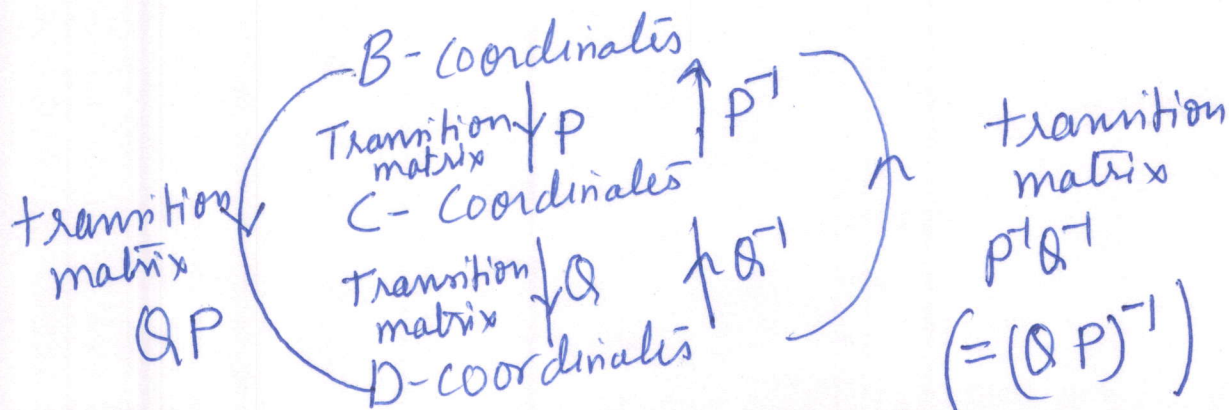 B-Coordinates
Transition matrix P
P⁻¹
C-Coordinates
Transition matrix Q
Q⁻¹
D-Coordinates
transition matrix
QP
transition matrix
P⁻¹Q⁻¹
(=(QP)⁻¹)